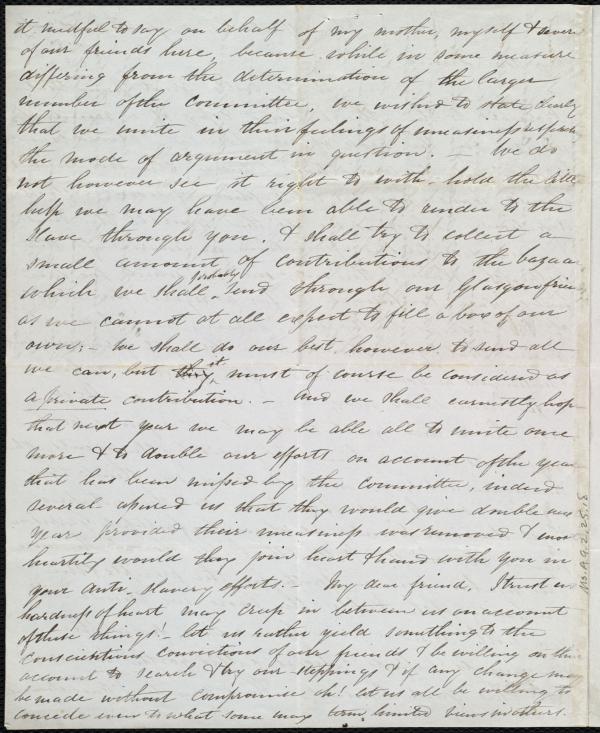 it needful to say on behalf of my mother, myself & seven
of our friends here, because while in some measure
differing from the determination of the larger
number of the committee, we wished to state clearly
that we unite in their feelings of uneasiness respect
the mode of argument in question. — We do
not however see it right to with-hold the little
help we may have been able to render to the
Slave through you. & shall try to collect a
small amount of contributions to the bazaa
which we shall probably send through our Glasgow frien
as we cannot at all expect to fill a box of our
own; — we shall do our best however to send all
we can, but they it must of course be considered as
a private contribution. — And we shall earnestly hop
that next year we may be able all to unite once
more & to double our efforts on account of the year
that has been missed by the committee, indeed
several assured us that they would give double next
year provided their uneasiness was removed & most
heartily would they join heart & hand with you in
your anti-slavery efforts. — My dear friend, I trust no
hardness of heart may creep in between us on account
of these things! — let us rather yield something to the
conscientious convictions of our friends & be willing on their
account to search & try our steppings & if any change may
be made without compromise oh! let us all be willing to
concede even to what some may term limited views in others.
Ms.A.9.2.25.5